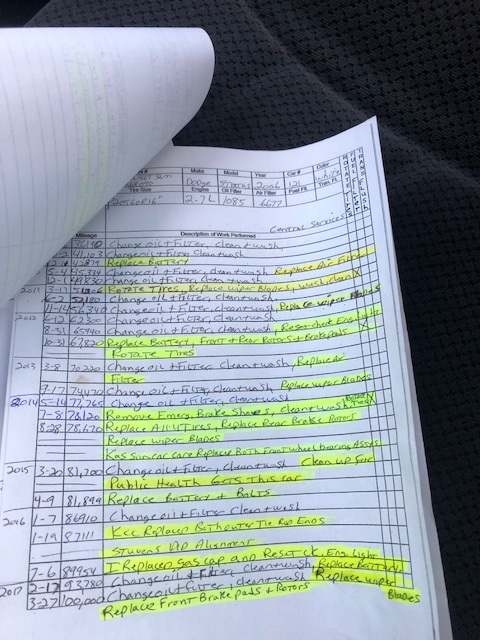 Make Model Year Car # Color
Dodge Stratus 2006 121 White
Tire Size Engine Oil Filter Air Filter Fuel Fil. Trans Fl.
20560R16" 2-7L 1085 6677
ROTATE TIRES
FUEL FILT
TRANS FLUSH
Central Services
Mileage Description of Work Performed
Change oil + Filter, clean + wash
41,103 Change oil + Filter, clean wash
Replace Battery
5-4 45,334 Change oil + Filter, clean + wash Replace Air Filter
Change oil + Filter, clean wash
2011 3-11 Rotate Tires, Replace Wiper Blades, wash, clean X
6-2 52,180 Change oil + Filter, clean + wash
11-14 56,340 Change oil + Filter, clean + wash, Replace wiper Blades
2012 6-12 62,300 Change oil + Filter, clean + wash
8-31 65,940 Change oil + Filter, clean + wash, Reset check Eng Light
10-31 67,820 Replace Battery, Front + Rear Rotors + Brake pads X
Rotate Tires
2013 3-8 70,220 Change oil + Filter, clean + wash, Replace Air
Filter
9-17 74,470 Change oil + Filter, clean + wash Replace wiper Blades
2014 5-14 77,765 Change oil + Filter, clean + wash
7-8 78,120 Remove Emerg. Brake Shoes, clean + wash X
8-28 78,670 Replace All 4 Tires, Replace Rear Brake Rotors
Replace wiper Blades
Kas Sumcar Care Replace Both Front wheel bearing Assys
2015 3-20 81,700 Change oil + Filter, clean + wash Clean up For
Public Health Gets This car
4-9 81,899 Replace Battery + Bolts
2016 1-7 86910 Change oil + Filter clean + wash
1-19 87111 KCC Replaces Both outer Tie Rod Ends
Stuvens DID Alignment
7-6 89954 I Replaced gas cap and Reset ck. Eng. Light
2017 2-17 93780 Change oil + Filter, clean + wash, Replace Battery
3-27 100,000 Change oil + Filter, clean + wash Replace wiper Blades
Replace Front Brake pads + Rotors